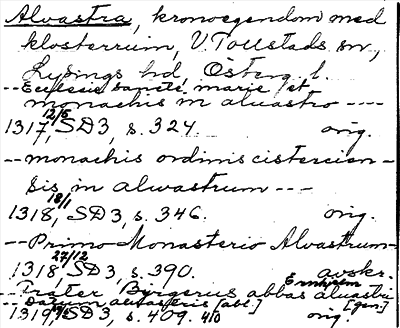 Alvastra, kronoegendom med
klosterruin, V. Tollstads sn,
Lysings hd, Österg. l.
-- Ecclesie sancte marie et
monachis in alwastro ----
1317 12/5, SD3, s. 324. orig.
-- monachis ordinis cistercien-
sis in alwastrum ---
1318 18/1, SD3, s. 346. orig.
-- Primo Monasterio Alvastrum--
1318 27/12 SD3, s. 390. avskr.
-- Frater Byrgerus abbas aluastri
-- Datum aluastris [abl.] [gen.]
1319, SD3, s. 409. 410 orig.